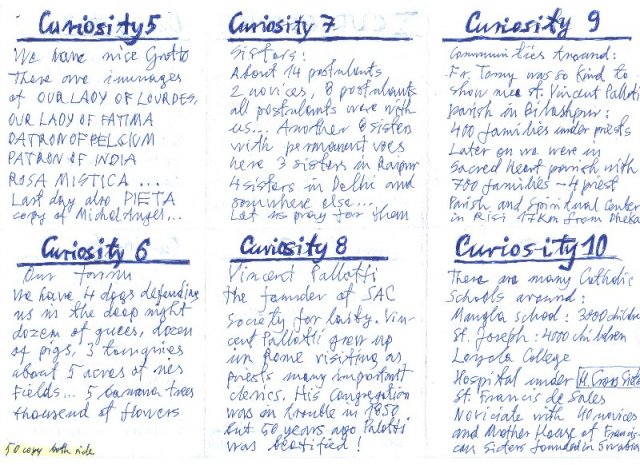 Curiosity 5
We have nice Grotto
There are immages
of OUR LADY OF LOURDES,
OUR LADY OF FATIMA
PATRON OF BELGIUM
PATRON OF INDIA
ROSA MISTICA ...
Last day also PIETA
copy of Michel Angel...
Curiosity 6
Our farm
We have 4 dogs defending
us in the deep night
dozen of gues, dozen
of pigs, 3
about 5 acres of
Fields... 5 banana trees
thousend of flowers
50 copy both side
Curiosity 7
Sisters:
About 14 postulants
2 novices, 8 postulants
all postulants were with
us... Another 8 sisters
with permanent vows
here 3 sisters in Raipur
4 sisters in Delhi and
somewhere else...
Let us pray for them
Curiosity 8
Vincent Pallotti
the founder of SAC
Society for laity. Vin-
cent Pallotti grew up
in Rome visiting as
priests many important
clerics. His Congregation
was in trouble in 1850
but 50 years ago Palotti
was beatified!
Curiosity 9
Communities around:
Fr. Tomy was so kind to
show me st. Vincent Palloti
parish in Bilashpur:
400 families under priests
Later on we were in
Sacred Heart parish with
700 families - 4 priest
Parish and Spiritual Center
in 17 km from
Curiosity 10
There are many Catholic
Schools around:
Mangla school: 3000 childre
St. Joseph: 4000 children
Loyola College
Hospital under H. Cross Siste
St. Francis de Sales
Noviciate with 40 novices
and Mother House of Francis-
can Sisters founded in